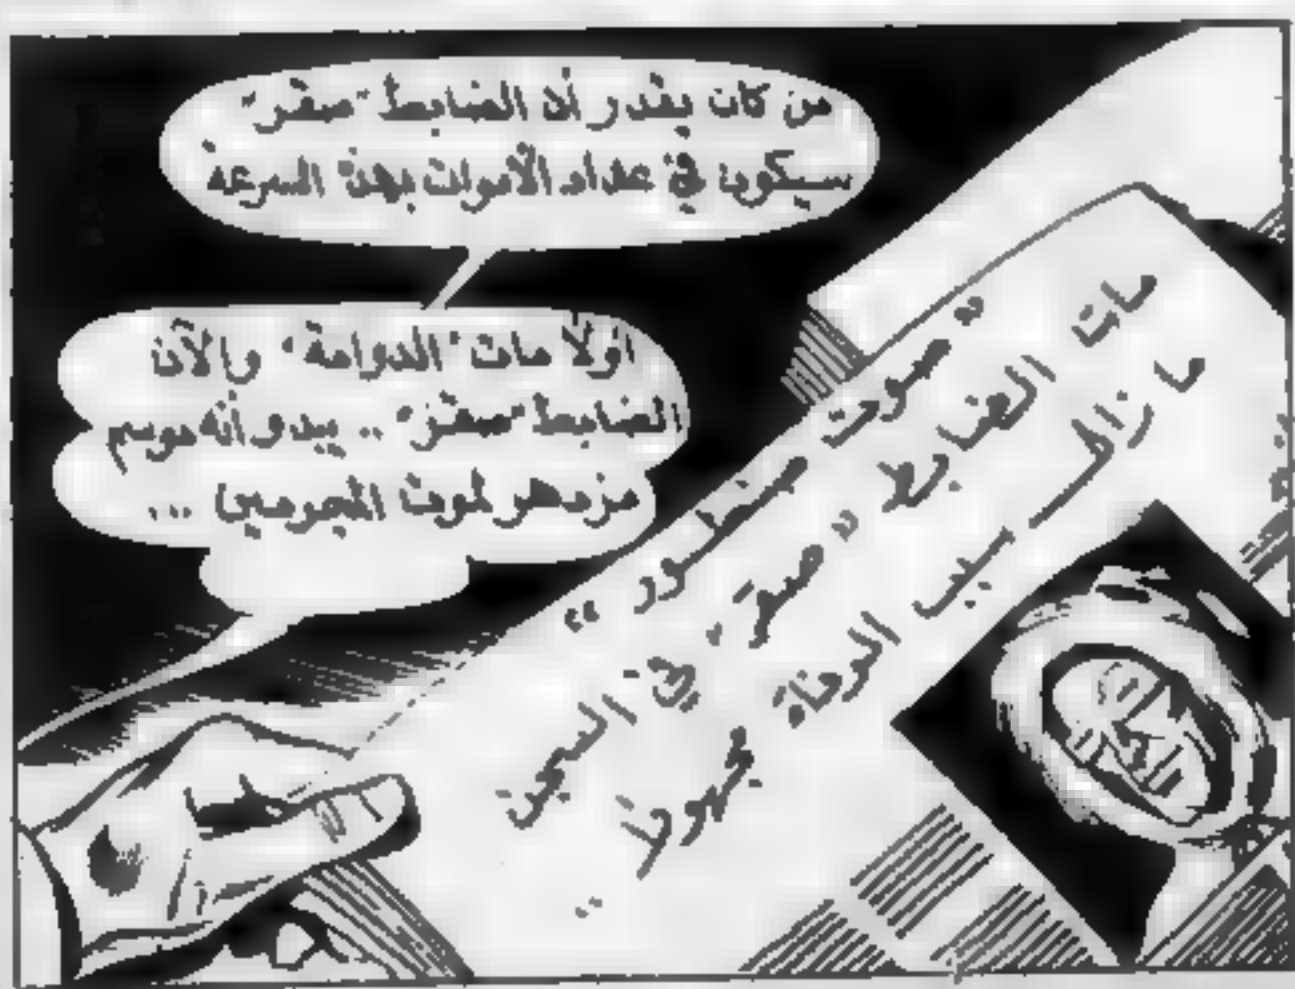 من كان يقدر أن الضابط "صقر"
سيكون في عداد الأموات بهذه السرعة
اولا مات "الدوامة" والآن
الضابط "صقر" .. يبدو أنه موسم
مزدهر لموت المجرمين ...
"صوت منظور"
مات الضابط "صقر" في السجن
ما زال سبب الوفاة مجهولا ..